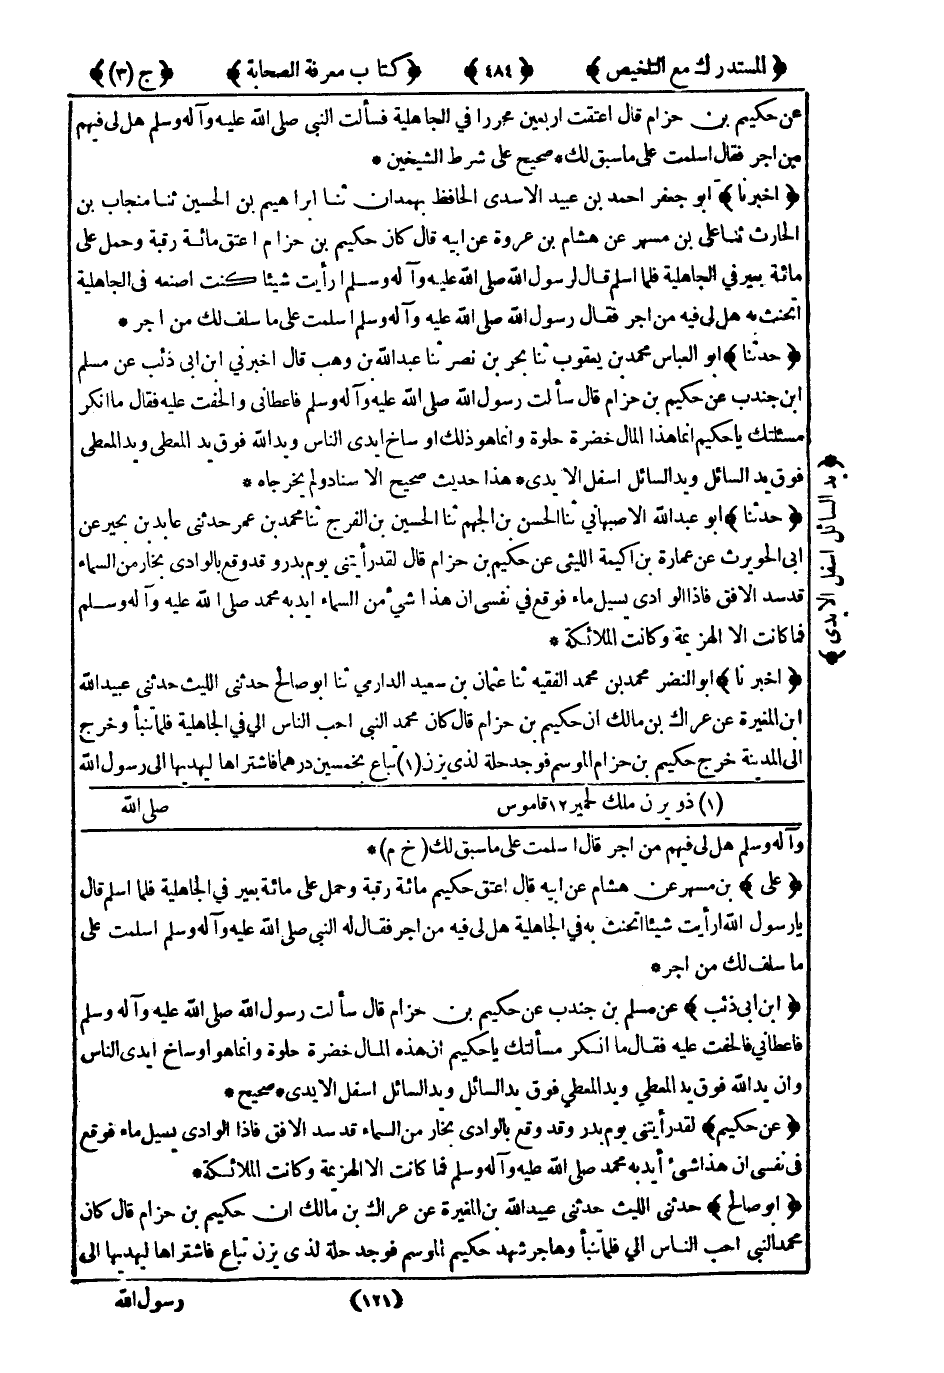 ﴿ المستدرك مع التلخيص ﴾ ﴿ ٤٨٤ ﴾ ﴿ كتاب معرفة الصحابة ﴾ ﴿ ج (٣) ﴾
عن حكيم بن حزام قال اعتقت اربعين محررا في الجاهلية فسألت النبي صلى الله عليه وآله وسلم هل لى فيهم
من اجر فقال اسلمت على ماسبق لك * صحيح على شرط الشيخين *
﴿ اخبرنا ﴾ ابو جعفر احمد بن عبيد الاسدى الحافظ بهمدان ثنا ابراهيم بن الحسين ثنا منجاب بن
الحارث ثنا على بن مسهر عن هشام بن عروة عن ابيه قال كان حكيم بن حزام اعتق مائة رقبة وحمل على
مائة بعير في الجاهلية فلما اسلم قال لرسول الله صلى الله عليه وآله وسلم ارأيت شيئا كنت اصنعه فى الجاهلية
اتحنث به هل لى فيه من اجر فقال رسول الله صلى الله عليه وآله وسلم اسلمت على ما سلف لك من اجر *
﴿ حدثنا ﴾ ابو العباس محمد بن يعقوب ثنا بحر بن نصر ثنا عبدالله بن وهب قال اخبرني ابن ابى ذئب عن مسلم
ابن جندب عن حكيم بن حزام قال سألت رسول الله صلى الله عليه وآله وسلم فاعطانى والحفت عليه فقال ما انكر
مسئلتك ياحكيم انما هذا المال خضرة حلوة وانما هو ذلك اوساخ ايدى الناس ويدالله فوق يد المعطى ويد المعطى
فوق يد السائل ويد السائل اسفل الايدى * هذا حديث صحيح الاسناد ولم يخرجاه *
﴿ حدثنا ﴾ ابو عبدالله الاصبهاني ثنا الحسن بن الجهم ثنا الحسين بن الفرج ثنا محمد بن عمر حدثنى عابد بن بحير عن
ابى الحويرث عن عمارة بن اكيمة الليثى عن حكيم بن حزام قال لقد رأيتنى يوم بدر وقد وقع بالوادى بخار من السماء
قد سد الافق فاذا الوادى يسيل ماء فوقع في نفسى ان هذا شيء من السماء ايد به محمد صلى الله عليه وآله وسلم
فما كانت الا الهزيمة وكانت الملائكة *
﴿ اخبرنا ﴾ ابو النضر محمد بن محمد الفقيه ثنا عثمان بن سعيد الدارمي ثنا ابو صالح حدثنى الليث حدثنى عبيدالله
ابن المغيرة عن عراك بن مالك ان حكيم بن حزام قال كان محمد النبي احب الناس الي في الجاهلية فلما تنبأ وخرج
الى المدينة خرج حكيم بن حزام الموسم فوجد حلة لذى يزن (١) تباع بخمسين درهما فاشتراها ليهديها الى رسول الله
(١) ذو يزن ملك لحمير ١٢ قاموس صلى الله
وآله وسلم هل لى فيهم من اجر قال اسلمت على ماسبق لك ( خ م ) *
﴿ على ﴾ بن مسهر عن هشام عن ابيه قال اعتق حكيم مائة رقبة وحمل على مائة بعير في الجاهلية فلما اسلم قال
يارسول الله ارأيت شيئا اتحنث به في الجاهلية هل لى فيه من اجر فقال له النبى صلى الله عليه وآله وسلم اسلمت على
ما سلف لك من اجر *
﴿ ابن ابى ذئب ﴾ عن مسلم بن جندب عن حكيم بن حزام قال سألت رسول الله صلى الله عليه وآله وسلم
فاعطاني فالحفت عليه فقال ما انكر مسألتك ياحكيم ان هذه المال خضرة حلوة وانما هو اوساخ ايدى الناس
وان يد الله فوق يد المعطي ويد المعطي فوق يد السائل ويد السائل اسفل الايدى * صحيح *
﴿ عن حكيم ﴾ لقد رأيتنى يوم بدر وقد وقع بالوادى بخار من السماء قد سد الافق فاذا الوادى يسيل ماء فوقع
فى نفسى ان هذا شئ أيد به محمد صلى الله عليه وآله وسلم فما كانت الا الهزيمة وكانت الملائكة *
﴿ ابو صالح ﴾ حدثنى الليث حدثنى عبيدالله بن المغيرة عن عراك بن مالك ان حكيم بن حزام قال كان
محمد النبي احب الناس الي فلما تنبأ وهاجر شهد حكيم الموسم فوجد حلة لذى يزن تباع فاشتراها ليهديها الى
﴿ ١٢١ ﴾ رسول الله
﴿ يد السائل اسفل الايدى ﴾